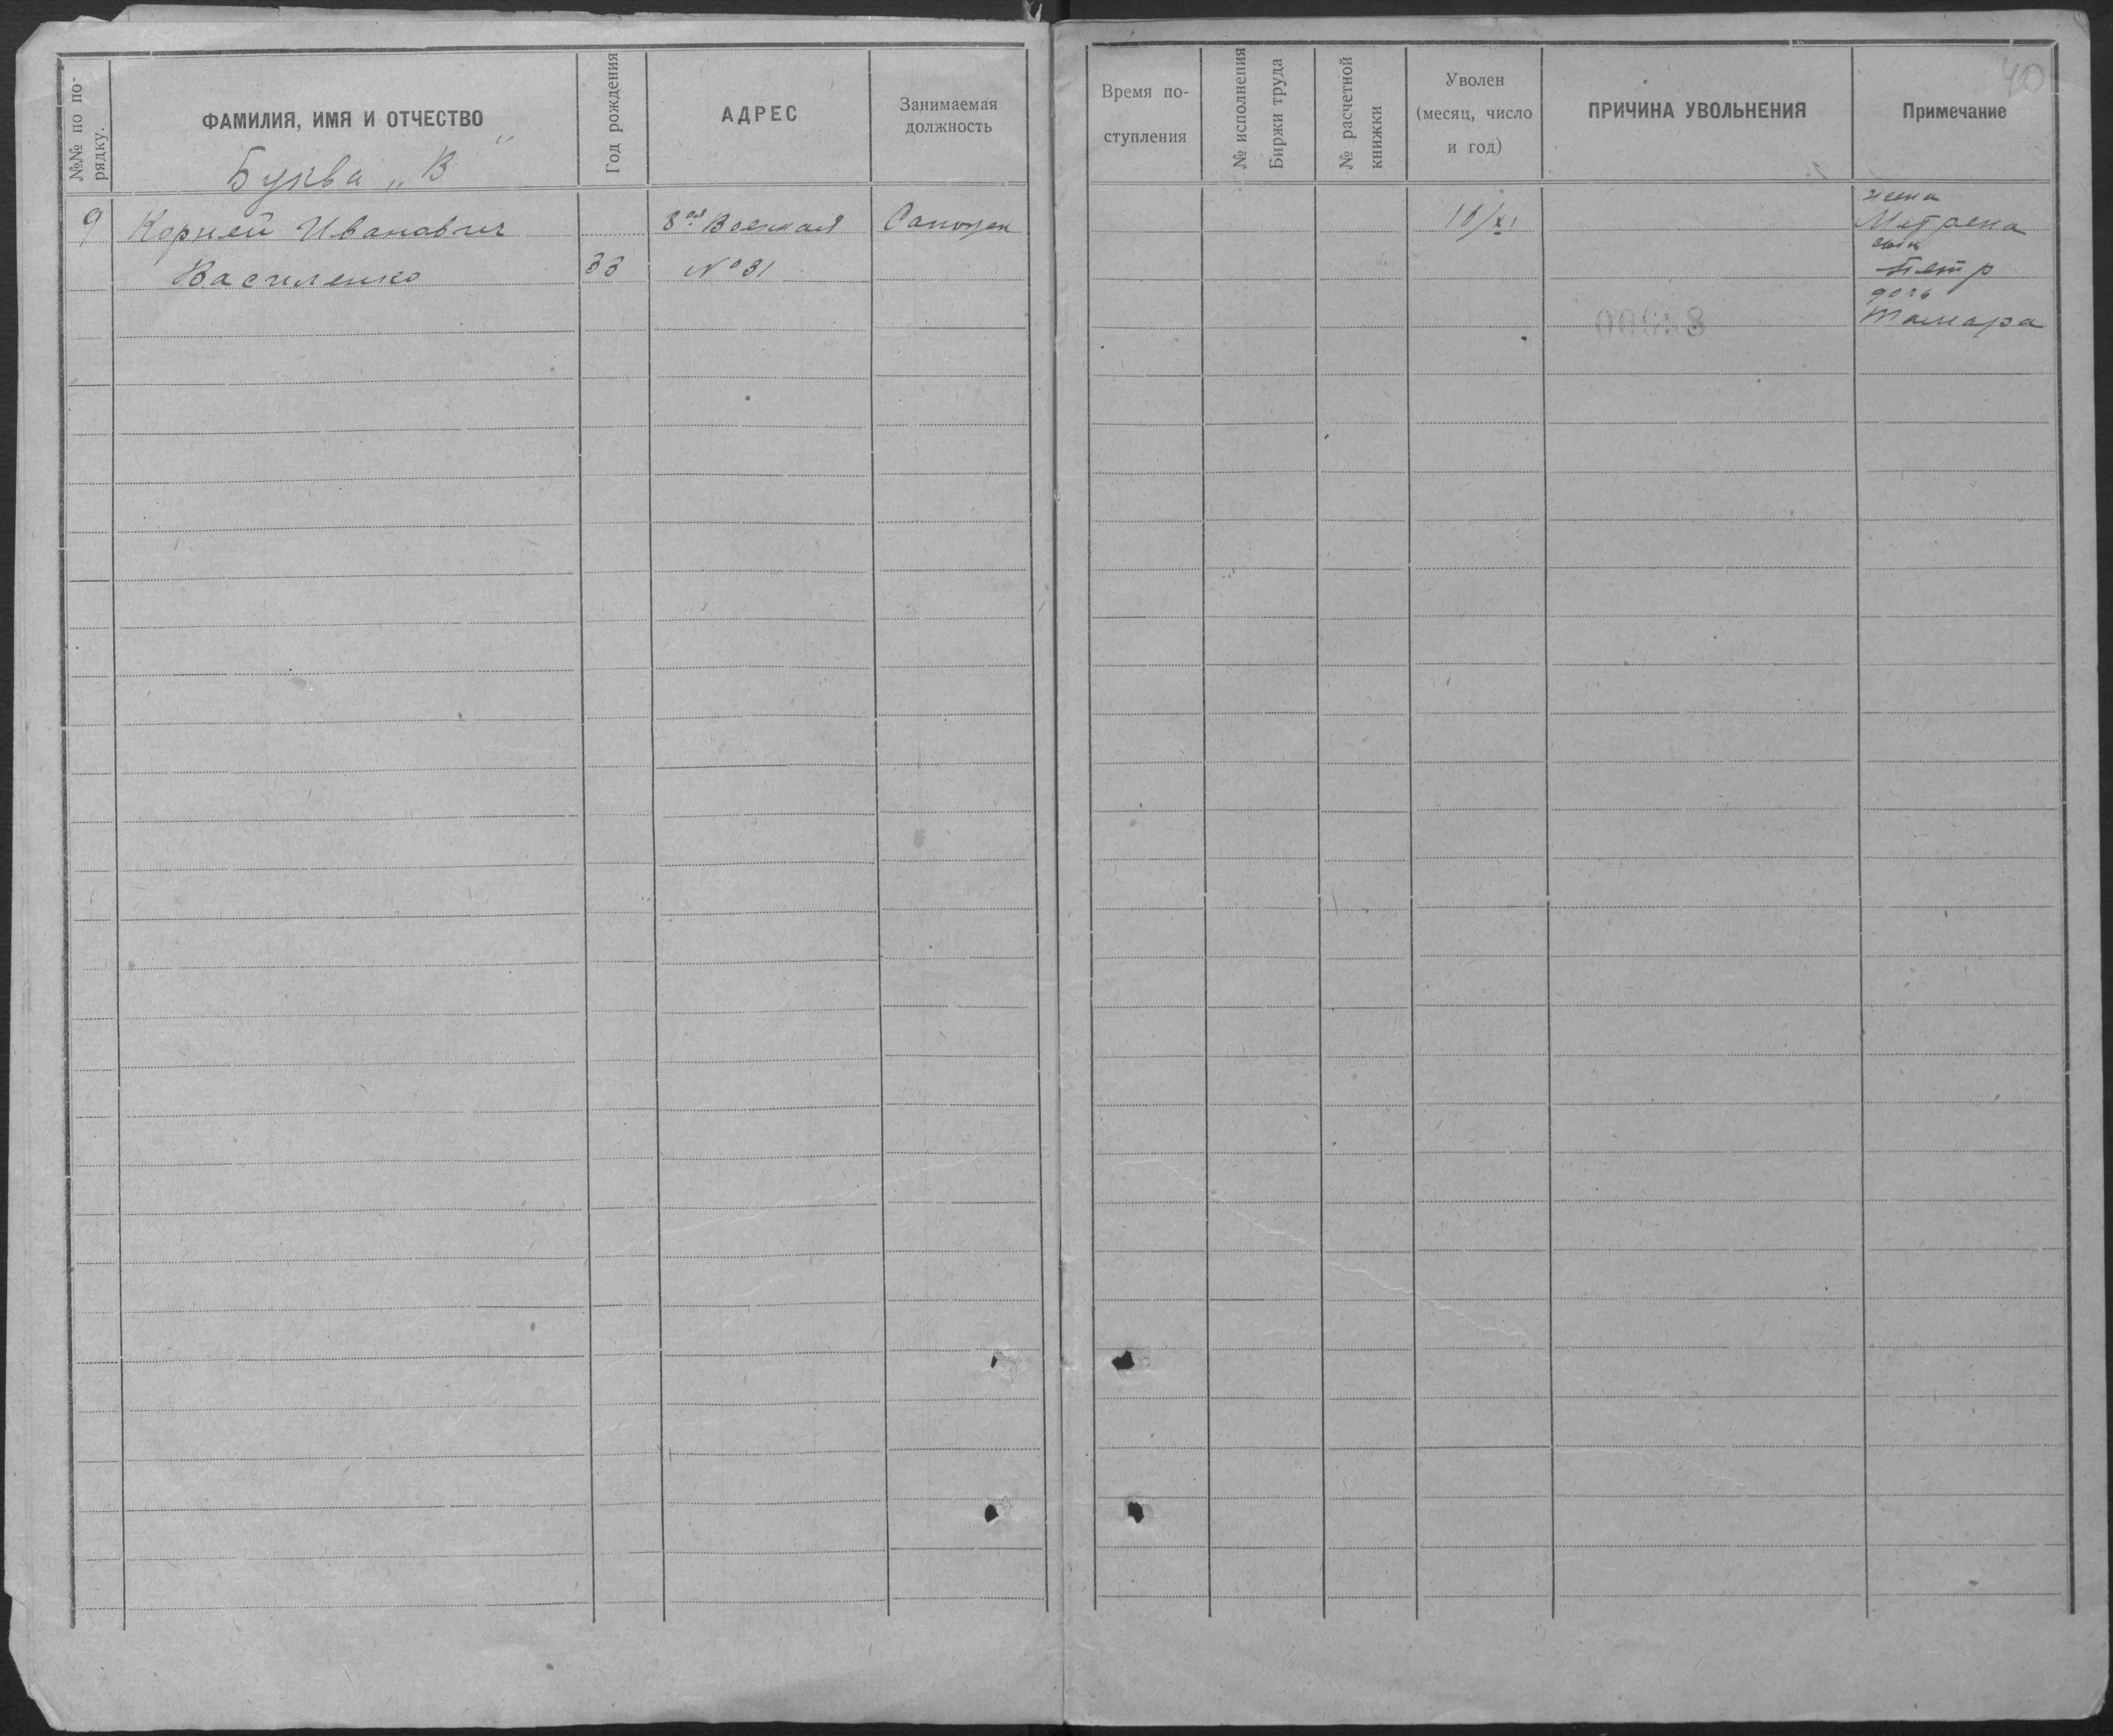 №№ по порядку.
ФАМИЛИЯ, ИМЯ И ОТЧЕСТВО
Буква „В"
Год рождения
АДРЕС
Занимаемая
должность
Время по-
ступления
№ исполнения
Биржи труда
№ расчетной
книжки
Уволен
(месяц, число
и год)
ПРИЧИНА УВОЛЬНЕНИЯ
Примечание
40
9 Корней Иванович 8ая Военная 16/XI жена
Матрена
сын
Василенко 33 № 31 Петр
дочь
Тамара